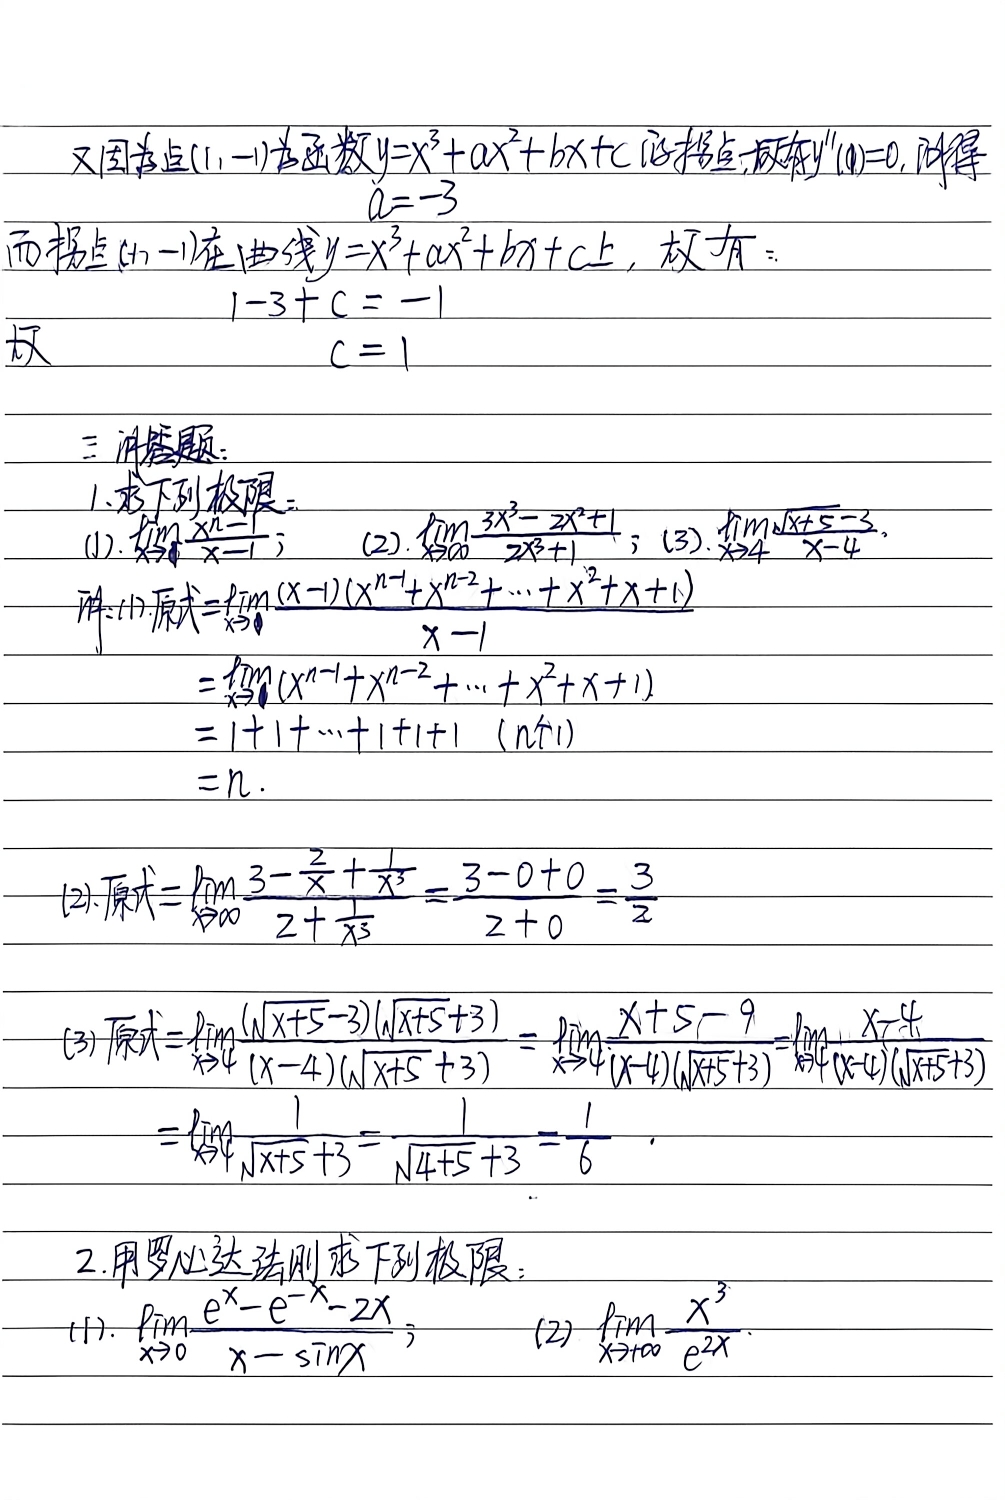 又因为点(1,-1)为函数y=x³+ax²+bx+c的拐点,故有y''(1)=0,解得
a=-3
而拐点(1,-1)在曲线y=x³+ax²+bx+c上,故有:
1-3+c=-1
故 c=1
三 解答题:
1.求下列极限:
(1). lim_{x→1} (xⁿ-1)/(x-1); (2). lim_{x→∞} (3x³-2x²+1)/(2x³+1); (3). lim_{x→4} (√(x+5)-3)/(x-4).
解:(1).原式=lim_{x→1} (x-1)(xⁿ⁻¹+xⁿ⁻²+…+x²+x+1)/(x-1)
=lim_{x→1} (xⁿ⁻¹+xⁿ⁻²+…+x²+x+1)
=1+1+…+1+1+1 (n个1)
=n.
(2).原式=lim_{x→∞} (3-2/x+1/x³)/(2+1/x³)=(3-0+0)/(2+0)=3/2
(3)原式=lim_{x→4} (√(x+5)-3)(√(x+5)+3)/((x-4)(√(x+5)+3))=lim_{x→4} (x+5-9)/((x-4)(√(x+5)+3))=lim_{x→4} (x-4)/((x-4)(√(x+5)+3))
=lim_{x→4} 1/(√(x+5)+3)=1/(√(4+5)+3)=1/6.
2.用罗必达法则求下列极限:
(1). lim_{x→0} (eˣ-e⁻ˣ-2x)/(x-sinx); (2) lim_{x→+∞} x³/e²ˣ.